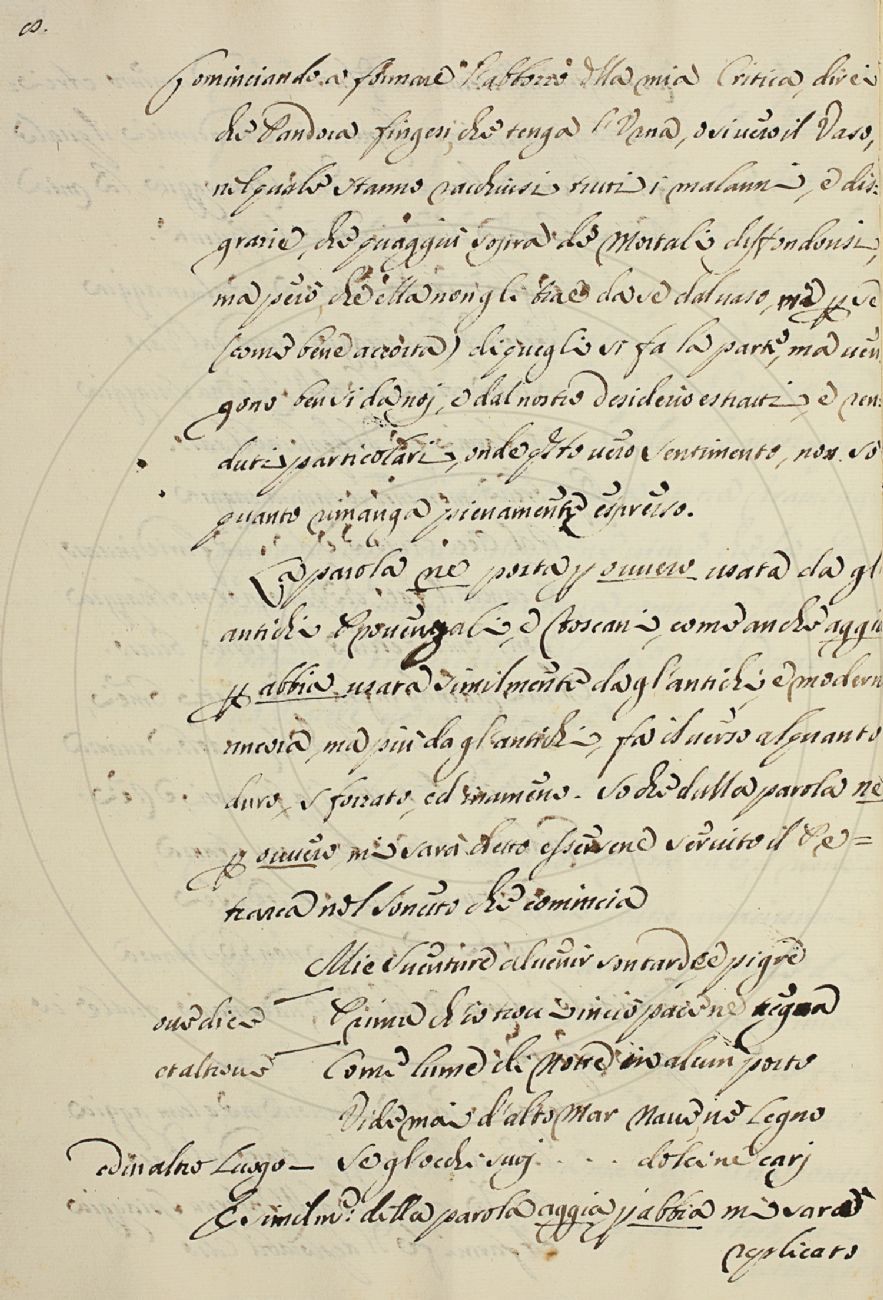 8.
Cominciando a formare l'abbozzo della mia Critica, direi
che Pandora fingesi, che tenga l'Urna, o si vero il Vaso,
nel quale stanno racchiusi tutti i malanni, e dis:
grazie, che quaggiù sopra de Mortali diffondonsi,
ma però, che ella non gli trae da se dal vaso, ne p se
(come bene accorta) di quegli si fa la parte, ma ven
gono bensi da noj, e dal nostro Desiderio estratti, e ren:
duti particolari, onde qsto vero Sentimento, non so
quanto rimanga pienamente espresso.
La parola ne posta p ovvero usata da gl
antichi Provenzali, e Toscani, come anche aggia
p abbia usata similmente da gl'antichi, e moderni
ancora, ma più da gl'antichi, fa il verso alquanto
duro, sforzato, ed inameno. So che dalla parola ne
p ovvero, mi sarà detto essersene servito il Pe=
trarca nel Sonetto che comincia
Mie Venture al venir son tarde e pigre
ove dice Prima ch'io trovi in ciò pace ne tregua
et altrove Come lume di notte in alcun porto
Vide mai d'alto Mar Nave ne Legno
ed in altro Luogo — Se gl'occhi suoj . . . . dolci ne carj
E similm.e della parola aggia p abbia mi sarà
replicato